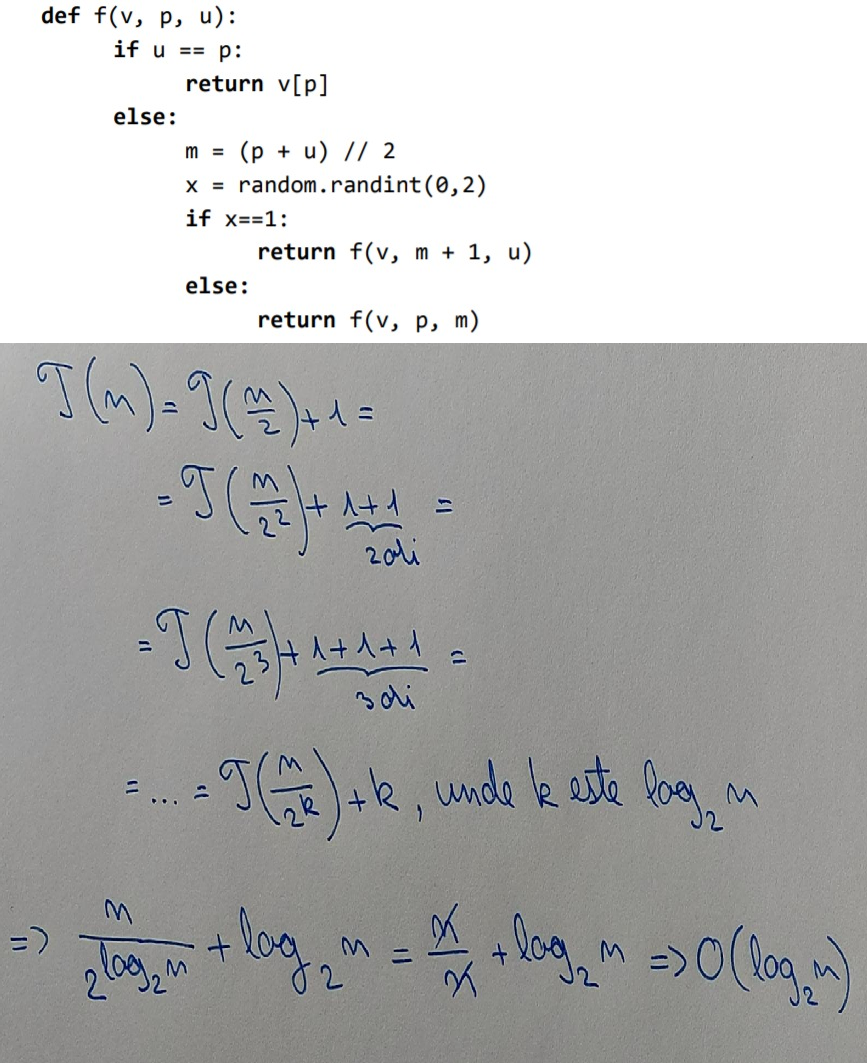 def f(v, p, u):
if u == p:
return v[p]
else:
m = (p + u) // 2
x = random.randint(0,2)
if x==1:
return f(v, m + 1, u)
else:
return f(v, p, m)
T(n) = T(n/2) + 1 =
= T(n/2²) + 1+1 =
2 ori
= T(n/2³) + 1+1+1 =
3 ori
= ... = T(n/2^k) + k, unde k este log₂ n
=> n/2^log₂n + log₂ n = n/n + log₂ n => O(log₂n)